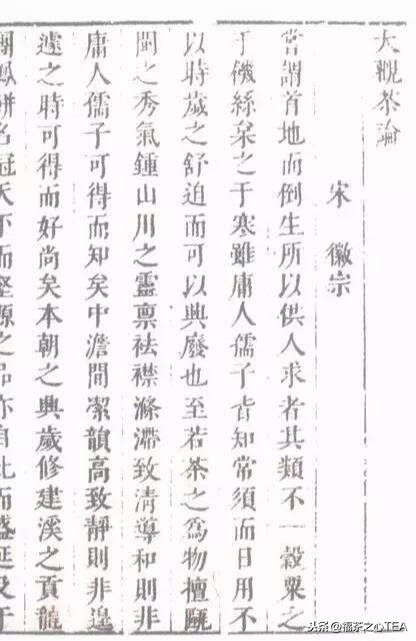 大觀茶論
宋 徽宗
嘗謂首地而倒生所以供人求者其類不一穀粟之
于饑絲枲之于寒雖庸人儒子皆知常須而日用不
以時歲之舒迫而可以興廢也至若茶之爲物擅甌
閩之秀氣鍾山川之靈禀袪襟滌滯致清導和則非
庸人儒子可得而知矣中澹間潔韻高致靜則非遑
遽之時可得而好尚矣本朝之興歲修建溪之貢龍
團鳳餅名冠天下而壑源之品亦自此而盛延及于
头条 @福茶之心TEA